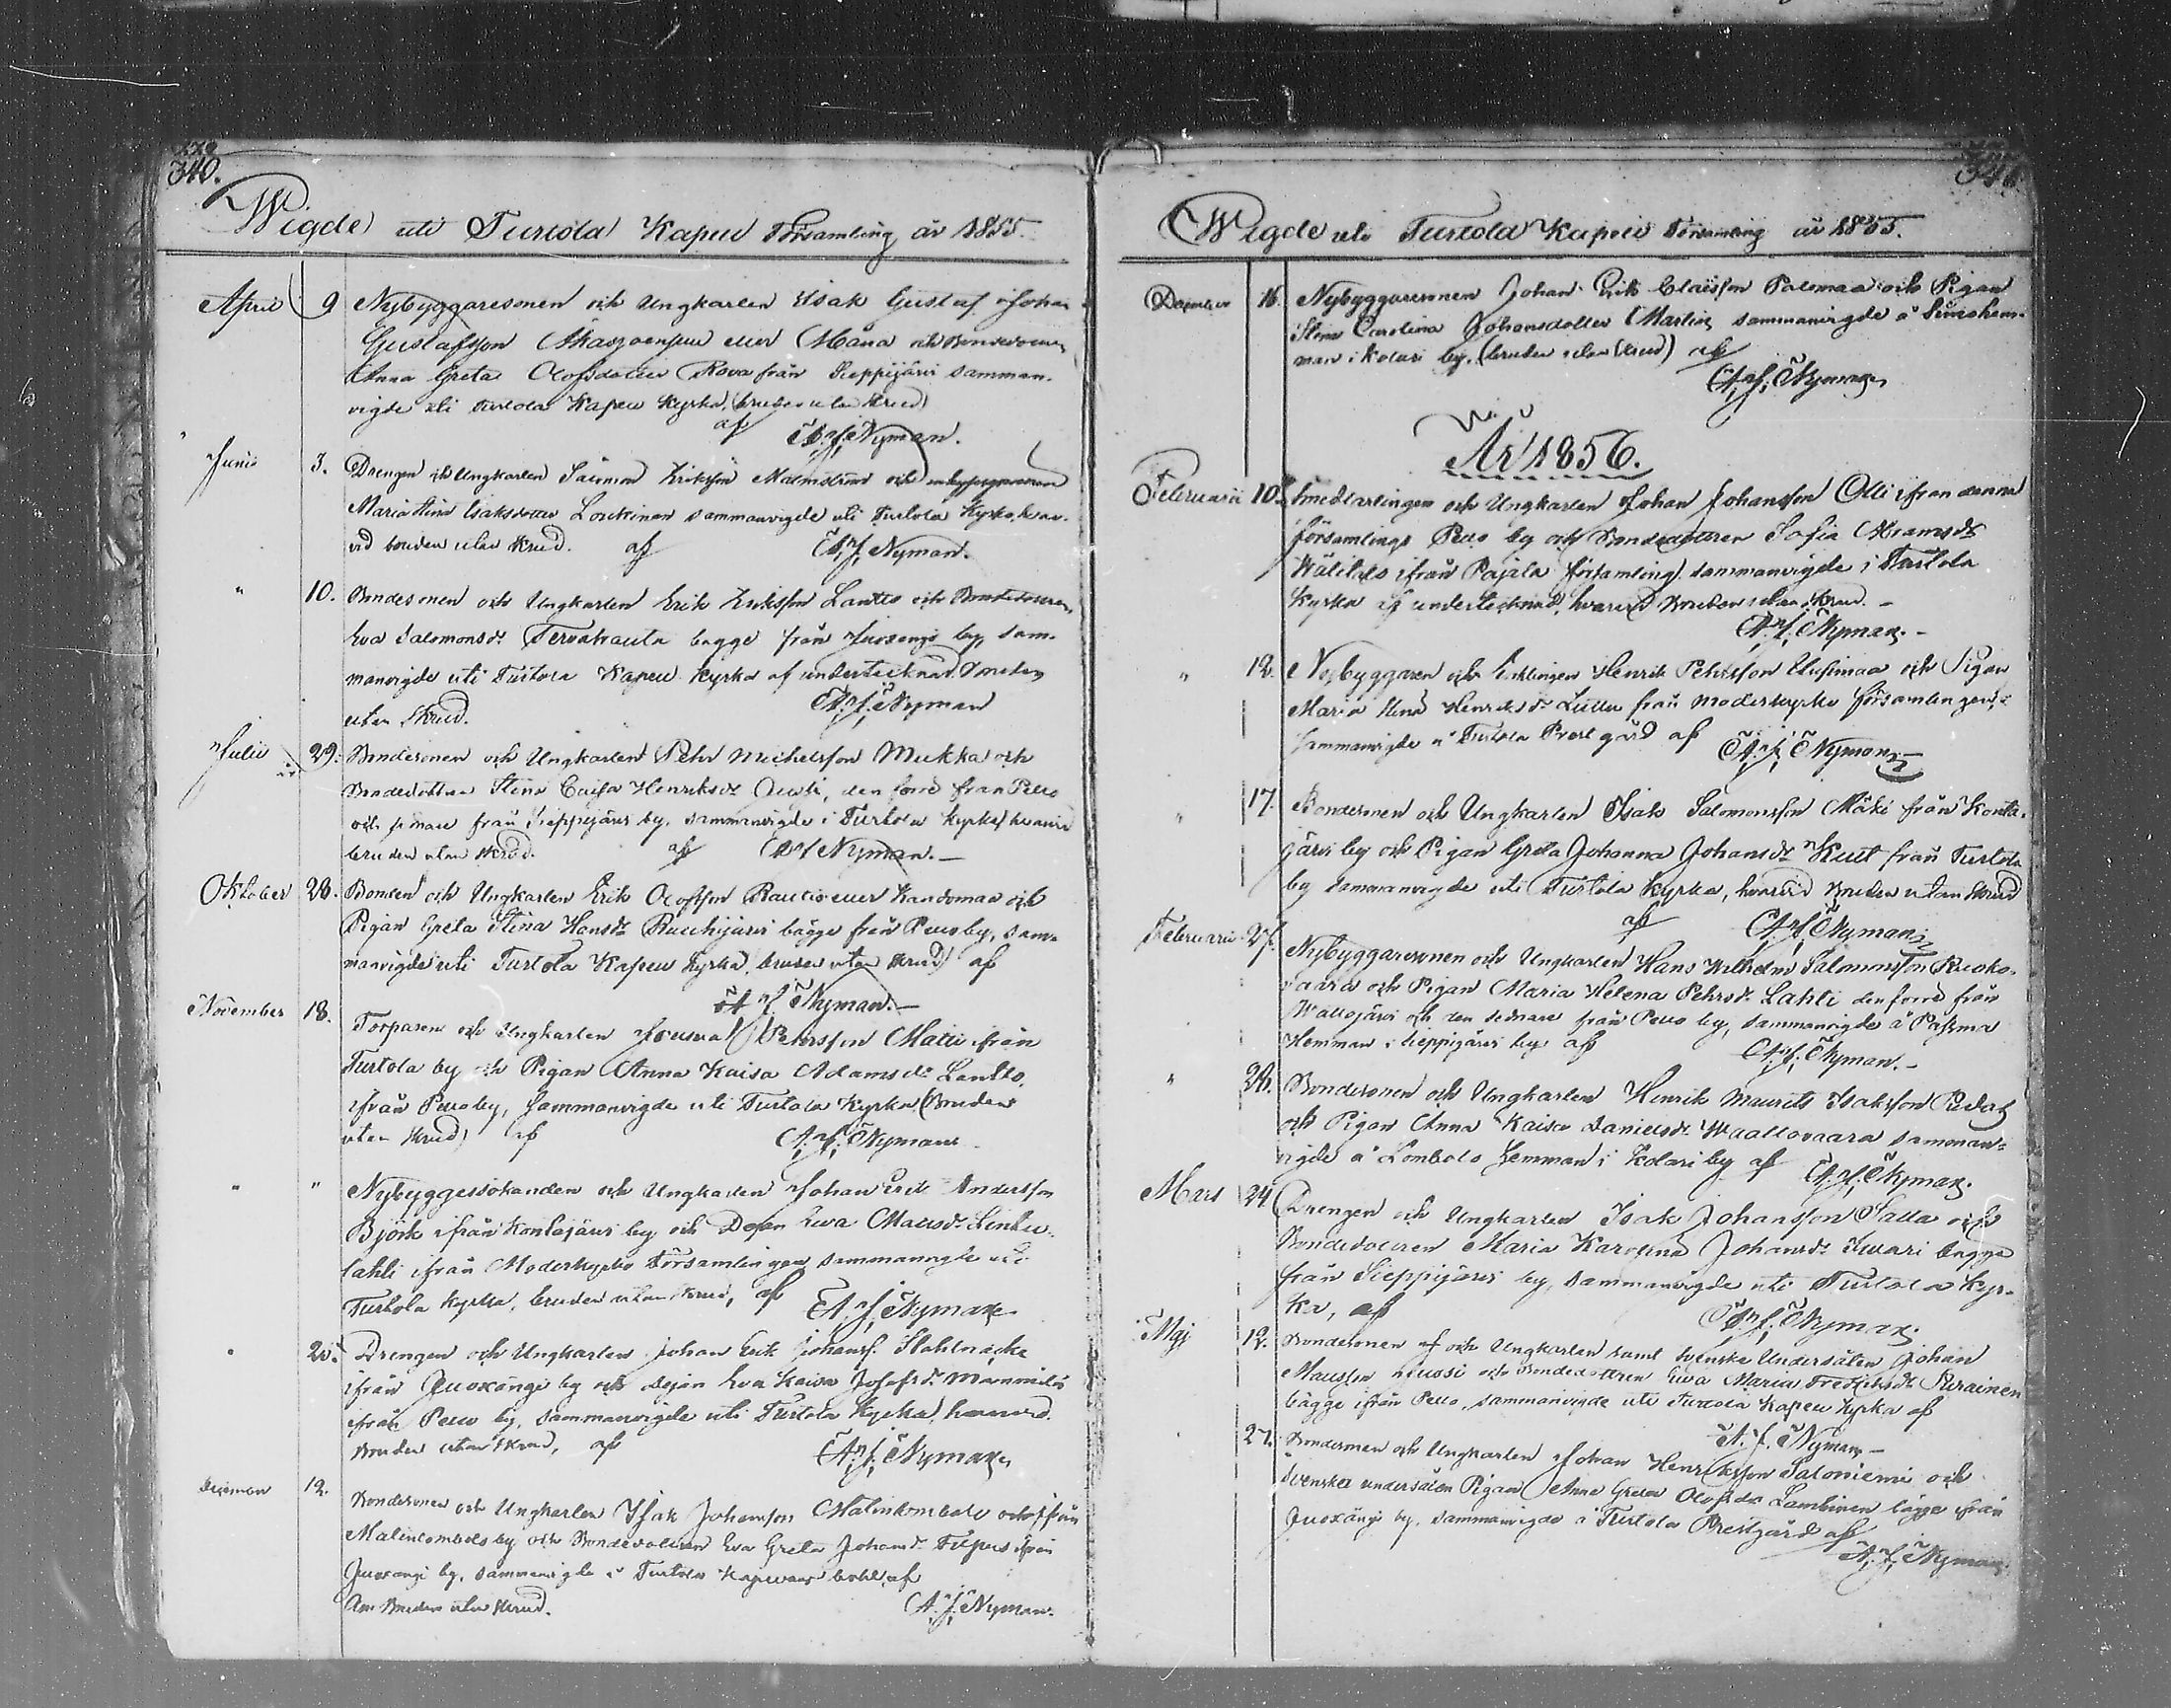 340.
Wigde uti Turtola Kapell Församling år 1855.
April 9 Nybyggaresonen och Ungkarlen Isak Gustaf Johan
Gustafsson eller Mäna och Bondedottren
Anna Greta Olofsdotter Rova från Sieppijärvi samman-
vigde uti Turtola Kapell Kyrka, (bruden utan skrud)
af A. J. Nyman.
Junii 3. Drengen och Ungkarlen Salomon Eriksson Malmström och
Maria Stina Isaksdotter Loukinen sammanvigde uti Turtola Kyrka, hvar-
vid bruden utan skrud. af A. J. Nyman.
" 10. Bondesonen och Ungkarlen Erik Eriksson Lantto och Bondedottren,
Eva Salomonsdr Tervahauta bägge från Juoxengi by, sam-
manvigde uti Turtola Kapell Kyrka af undertecknad. Bruden
utan skrud. A. J. Nyman
Julii 29. Bondesonen och Ungkarlen Pehr Michelsson Mukka och
Bondedottren Stina Caisa Henriksdr den förre från Pello
och senare från Sieppijärvi by, sammanvigde i Turtola Kyrka, hvarvid
bruden utan skrud. af A J Nyman.—
Oktober 28. Bonden och Ungkarlen Erik Olofsson Rautio eller Kandomaa och
Pigan Greta Stina Hansdr Ruuhijärvi bägge från Pello by, sam-
manvigde uti Turtola Kapell Kyrka, bruden utan skrud) af
A. J. Nyman.—
November 18. Torparen och Ungkarlen Josua Pehrsson Matti ifrån
Turtola by och Pigan Anna Kaisa Adamsdr Lantto,
ifrån Pello by, sammanvigde uti Turtola Kyrka, (Bruden
utan skrud) af A. J. Nyman.
" " Nybyggessökanden och Ungkarlen Johan Erik Andersson
Björk ifrån Kontajärvi by och Dejan Eva Matsdr Linku-
lahti ifrån Moderkyrko Församlingen sammanvigde uti
Turtola Kyrka, bruden utan skrud, af A. J. Nyman
" 25. Drengen och Ungkarlen Johan Erik Johanss. Stålnacke
ifrån Juoxängi by och dejan Eva Kaisa Josefsdr
ifrån Pello by, sammanvigde uti Turtola Kyrka, hvarvid
Bruden utan skrud, af A. J. Nyman
December 12. Bondesonen och Ungkarlen Isak Johansson Malinlombolo och ifrån
Malinlombolo by och Bondedottren Eva Greta Johansdr Filpus ifrån
Juoxengi by, sammanvigde i Turtola Kapellans bohl, af
Bruden utan skrud. A. J. Nyman.
341.
Wigde uti Turtola Kapell Församling år 1855.
December 16. Nybyggaresonen Johan Erik Claësson Palomaa och Pigan
Stina Carolina Johansdotter Martin sammanvigde å hem-
man i Kolari by. (bruden utan skrud) af
A. J. Nyman
År 1856.
Februarii 10. Inhultingen och Ungkarlen Johan Johansson Olli ifrån denna
församlings Pello by och Bondedottren Sofia Abramsdr
Wälitalo ifrån Pajala församling sammanvigde i Turtola
Kyrka af undertecknad, hvarvid Bruden utan skrud. –
A. J. Nyman. –
" 12. Nybyggaren och Enklingen Henrik Pehrsson Uusimaa och Pigan
Maria Stina Henriksdr från moderkyrko församlingen,
sammanvigde å Turtola Prestgård af A. J. Nyman
" 17 Bondesonen och Ungkarlen Isak Salomonsson Mäki från Konta-
järvi by och Pigan Greta Johanna Johansdr från Turtola
by sammanvigde uti Turtola Kyrka, hvarvid Bruden utan skrud
af A. J. Nyman
Februarii 27. Nybyggaresonen och Ungkarlen Hans Wilhelm Salomonsson Ruoko-
vaara och Pigan Maria Helena Pehrsdr Lahti den förre från
Wallojärvi och den sednare från Pello by, sammanvigde å Pasma
Hemman i Sieppijärvi by af A. J. Nyman. –
" 28. Bondesonen och Ungkarlen Henrik Maurits Isaksson Pudas
och Pigan Anna Kaisa Danielsdr Waattovaara samman-
vigde å Lombolo hemman i Kolari by af A. J. Nyman.
Mars 24 Drengen och Ungkarlen Isak Johansson Salla och
Bondedottren Maria Karolina Johansdr Iwari bägge
från Sieppijärvi by, sammanvigde uti Turtola Kyr-
ka, af A. J. Nyman
Maj 12. Bondesonen och Ungkarlen samt Svenske Undersåten Johan
Matsson Niussi och Bondedottren Eva Maria Fredriksdr
bägge ifrån Pello, sammanvigde uti Turtola Kapell Kyrka af
A. J. Nyman –
27. Bondesonen och Ungkarlen Johan Henriksson Saloniemi och
Svenska undersåten Pigan Anna Greta Olofsdr Lambinen bägge ifrån
Juoxängi by, sammanvigde i Turtola Prestgård af
A. J. Nyman.